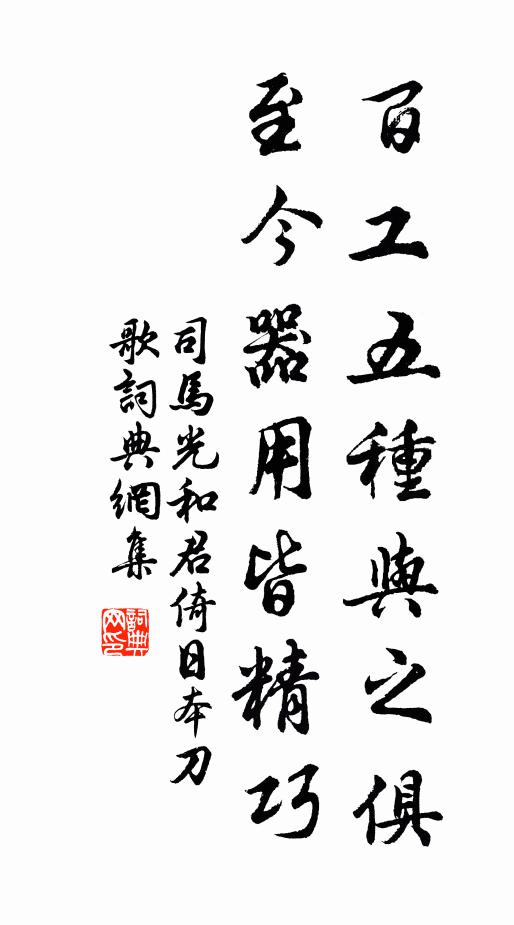 百工五種與之俱
至今器用皆精巧
司馬光和君倚日本刀
歌詞典網集
詞典網印